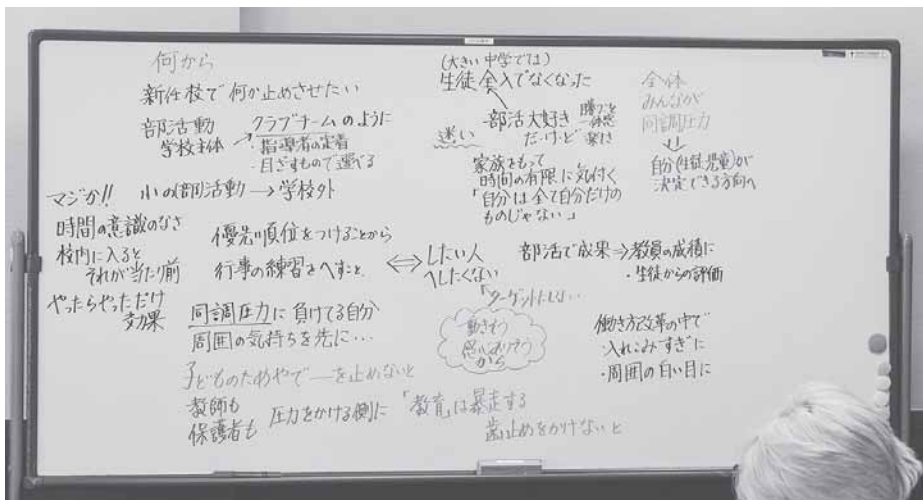 何から
新任校で何か止めさせたい
部活動
学校主体
クラブチームのように
・指導者の定着
・目ざすもので選べる
マジか!!
小の(部)活動→学校外
時間の意識のなさ
校内に入ると
それが当たり前
やったらやっただけ
効果
優先順位をつけることから
行事の練習をへすこと
同調圧力に負けてる自分
周囲の気持ちを先に…
子どものためやで―を止めないと
教師も
保護者も
圧力をかける側に
(大きい中学では)
生徒全入でなくなった
部活大好き
だけど
迷い
家族をもって
時間の有限に気付く
「自分は全て自分だけの
ものじゃない」
⇔
したい人
したくない
動きそう
から
「教育」は暴走する
歯止めをかけないと
全体
みんなが
同調圧力
⇓
自分(生徒児童)が
決定できる方向へ
部活で成果⇒教員の成績に
・生徒からの評価
働き方改革の中で
・入れこみすぎに
・周囲の白い目に